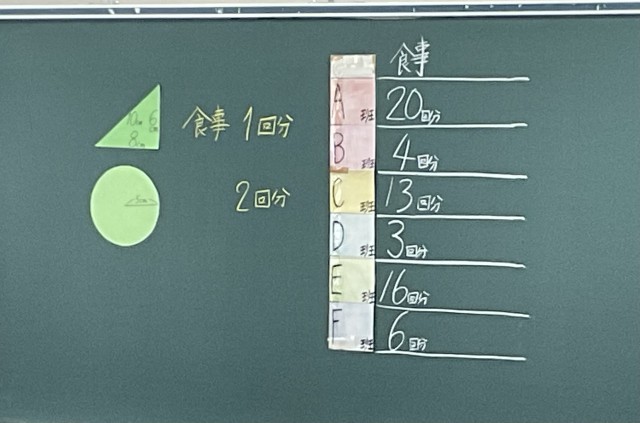 10cm 6cm
8cm
食事 1回分
5cm
2回分
食事
A班 20回分
B班 4回分
C班 13回分
D班 3回分
E班 16回分
F班 6回分